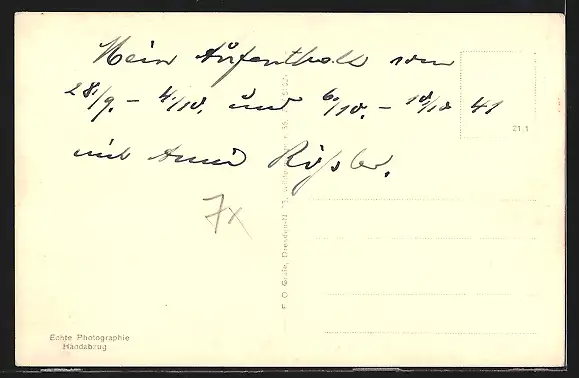 Mein Aufenthalt vom
28./9. – 4./10. und 6./10. – 10./10 41
mit Anni Rößler.
7x
21 1
F. O. Grafe, Dresden-N.
Echte Photographie
Handabzug